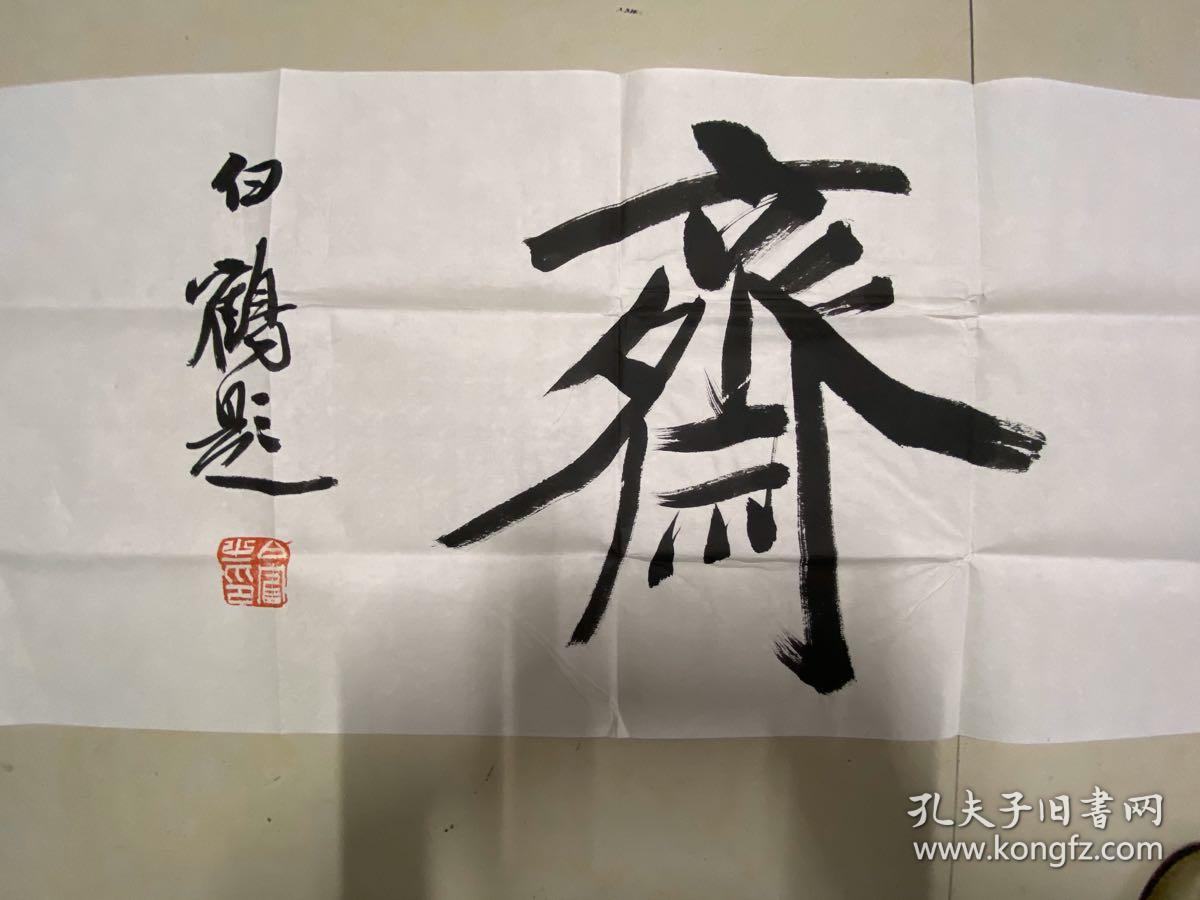 齋
白鶴題
孔夫子旧书网
www.kongfz.com